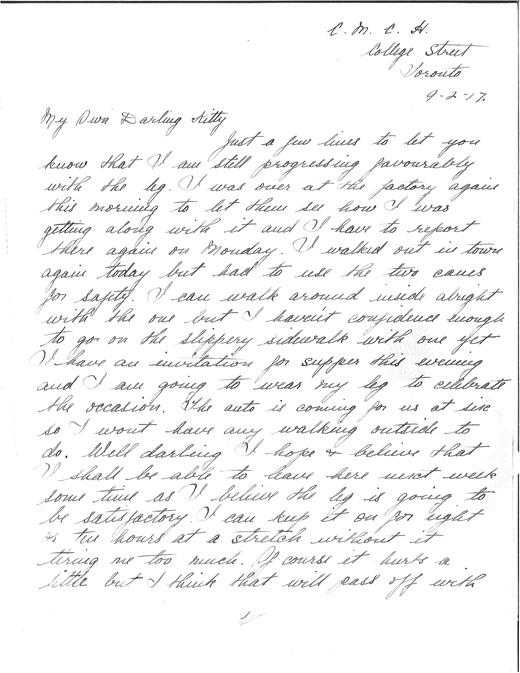 C. M. C. H.
College Street
Toronto
9-2-17.
My Own Darling Kitty
Just a few lines to let you
know that I am still progressing favourably
with the leg. I was over at the factory again
this morning to let them see how I was
getting along with it and I have to report
there again on Monday. I walked out in town
again today but had to use the two canes
for safety. I can walk around inside alright
with the one but I haven't confidence enough
to go on the slippery sidewalk with one yet
I have an invitation for supper this evening
and I am going to wear my leg to celebrate
the occasion. The auto is coming for us at six
so I wont have any walking outside to
do. Well darling I hope & believe that
I shall be able to leave here next week
some time as I believe the leg is going to
be satisfactory. I can keep it on for eight
& ten hours at a stretch without it
tiring me too much. Of course it hurts a
little but I think that will pass off with